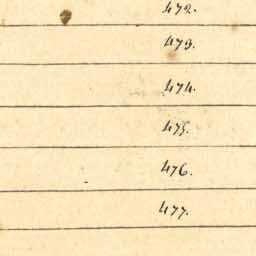 472.
473.
474.
475.
476.
477.